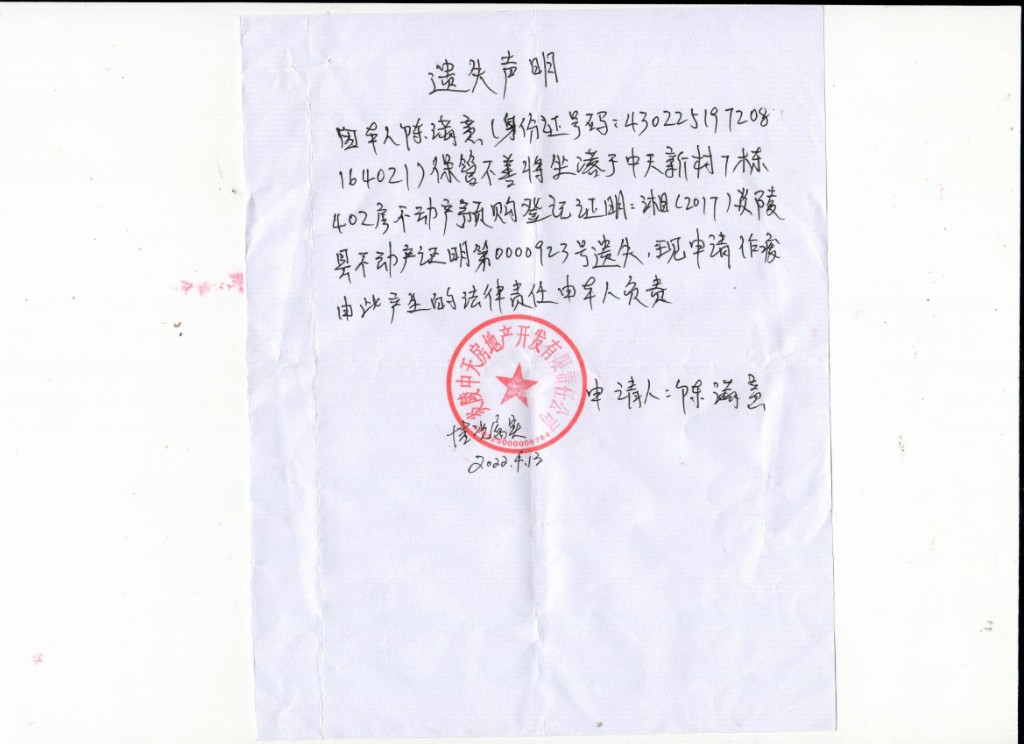 遗失声明
因本人陈满意(身份证号码:430225197208
164021)保管不善将坐落于中天新村7栋
402房不动产预购登记证明:湘(2017)炎陵
县不动产证明第0000923号遗失,现申请作废
由此产生的法律责任由本人负责
炎陵中天房地产开发有限责任公司
申请人:陈满意
情况属实
2022.4.13